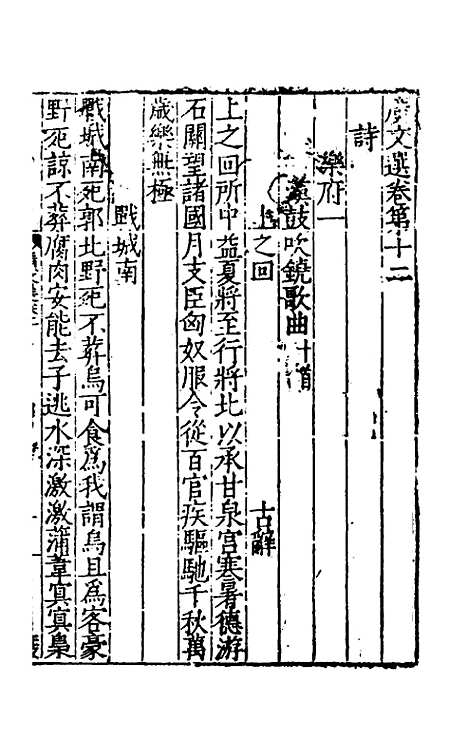 廣文選卷第十二
詩
樂府一
漢鼓吹鐃歌曲十首
上之回 古辭
上之回所中益夏將至行將北以承甘泉宮寒暑德游
石關望諸國月支臣匈奴服令從百官疾驅馳千秋萬
歲樂無極
戰城南
戰城南死郭北野死不葬烏可食爲我謂烏且爲客豪
野死諒不葬腐肉安能去子逃水深激激蒲葦冥冥梟